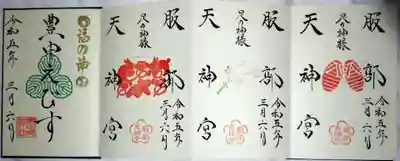 服部
足の神様
天神宮
令和五年
三月六日
服部
足の神様
天神宮
令和五年
三月六日
服部
足の神様
天神宮
令和五年
三月六日
福の神
豊中えびす
令和五年
三月六日